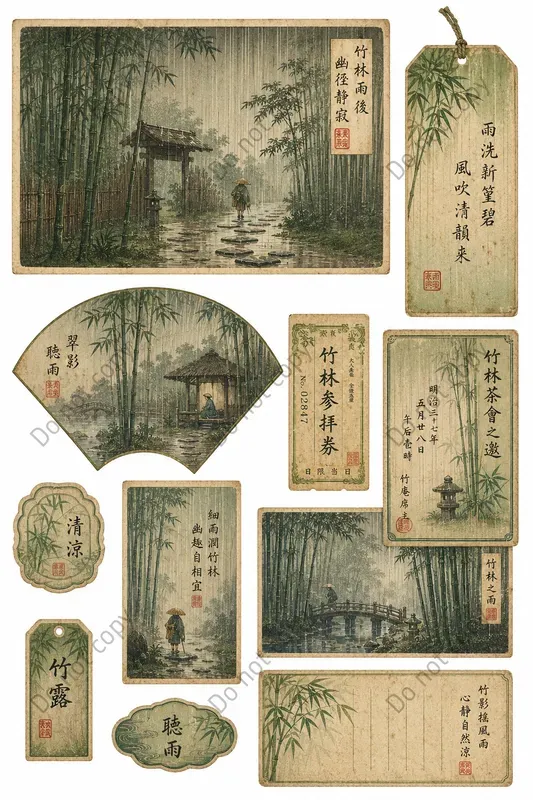 竹林雨後
幽径静寂
雨洗新篁碧
風吹清韻来
翠影
聴雨
竹林参拝券
No. 02847
日限当日
竹林茶會之邀
明治三十七年
五月廿八日
午后壹時
竹庵席主
清涼
細雨潤竹林
幽趣自相宜
竹林之雨
竹露
聴雨
竹影揺風雨
心静自然涼
Do not copy